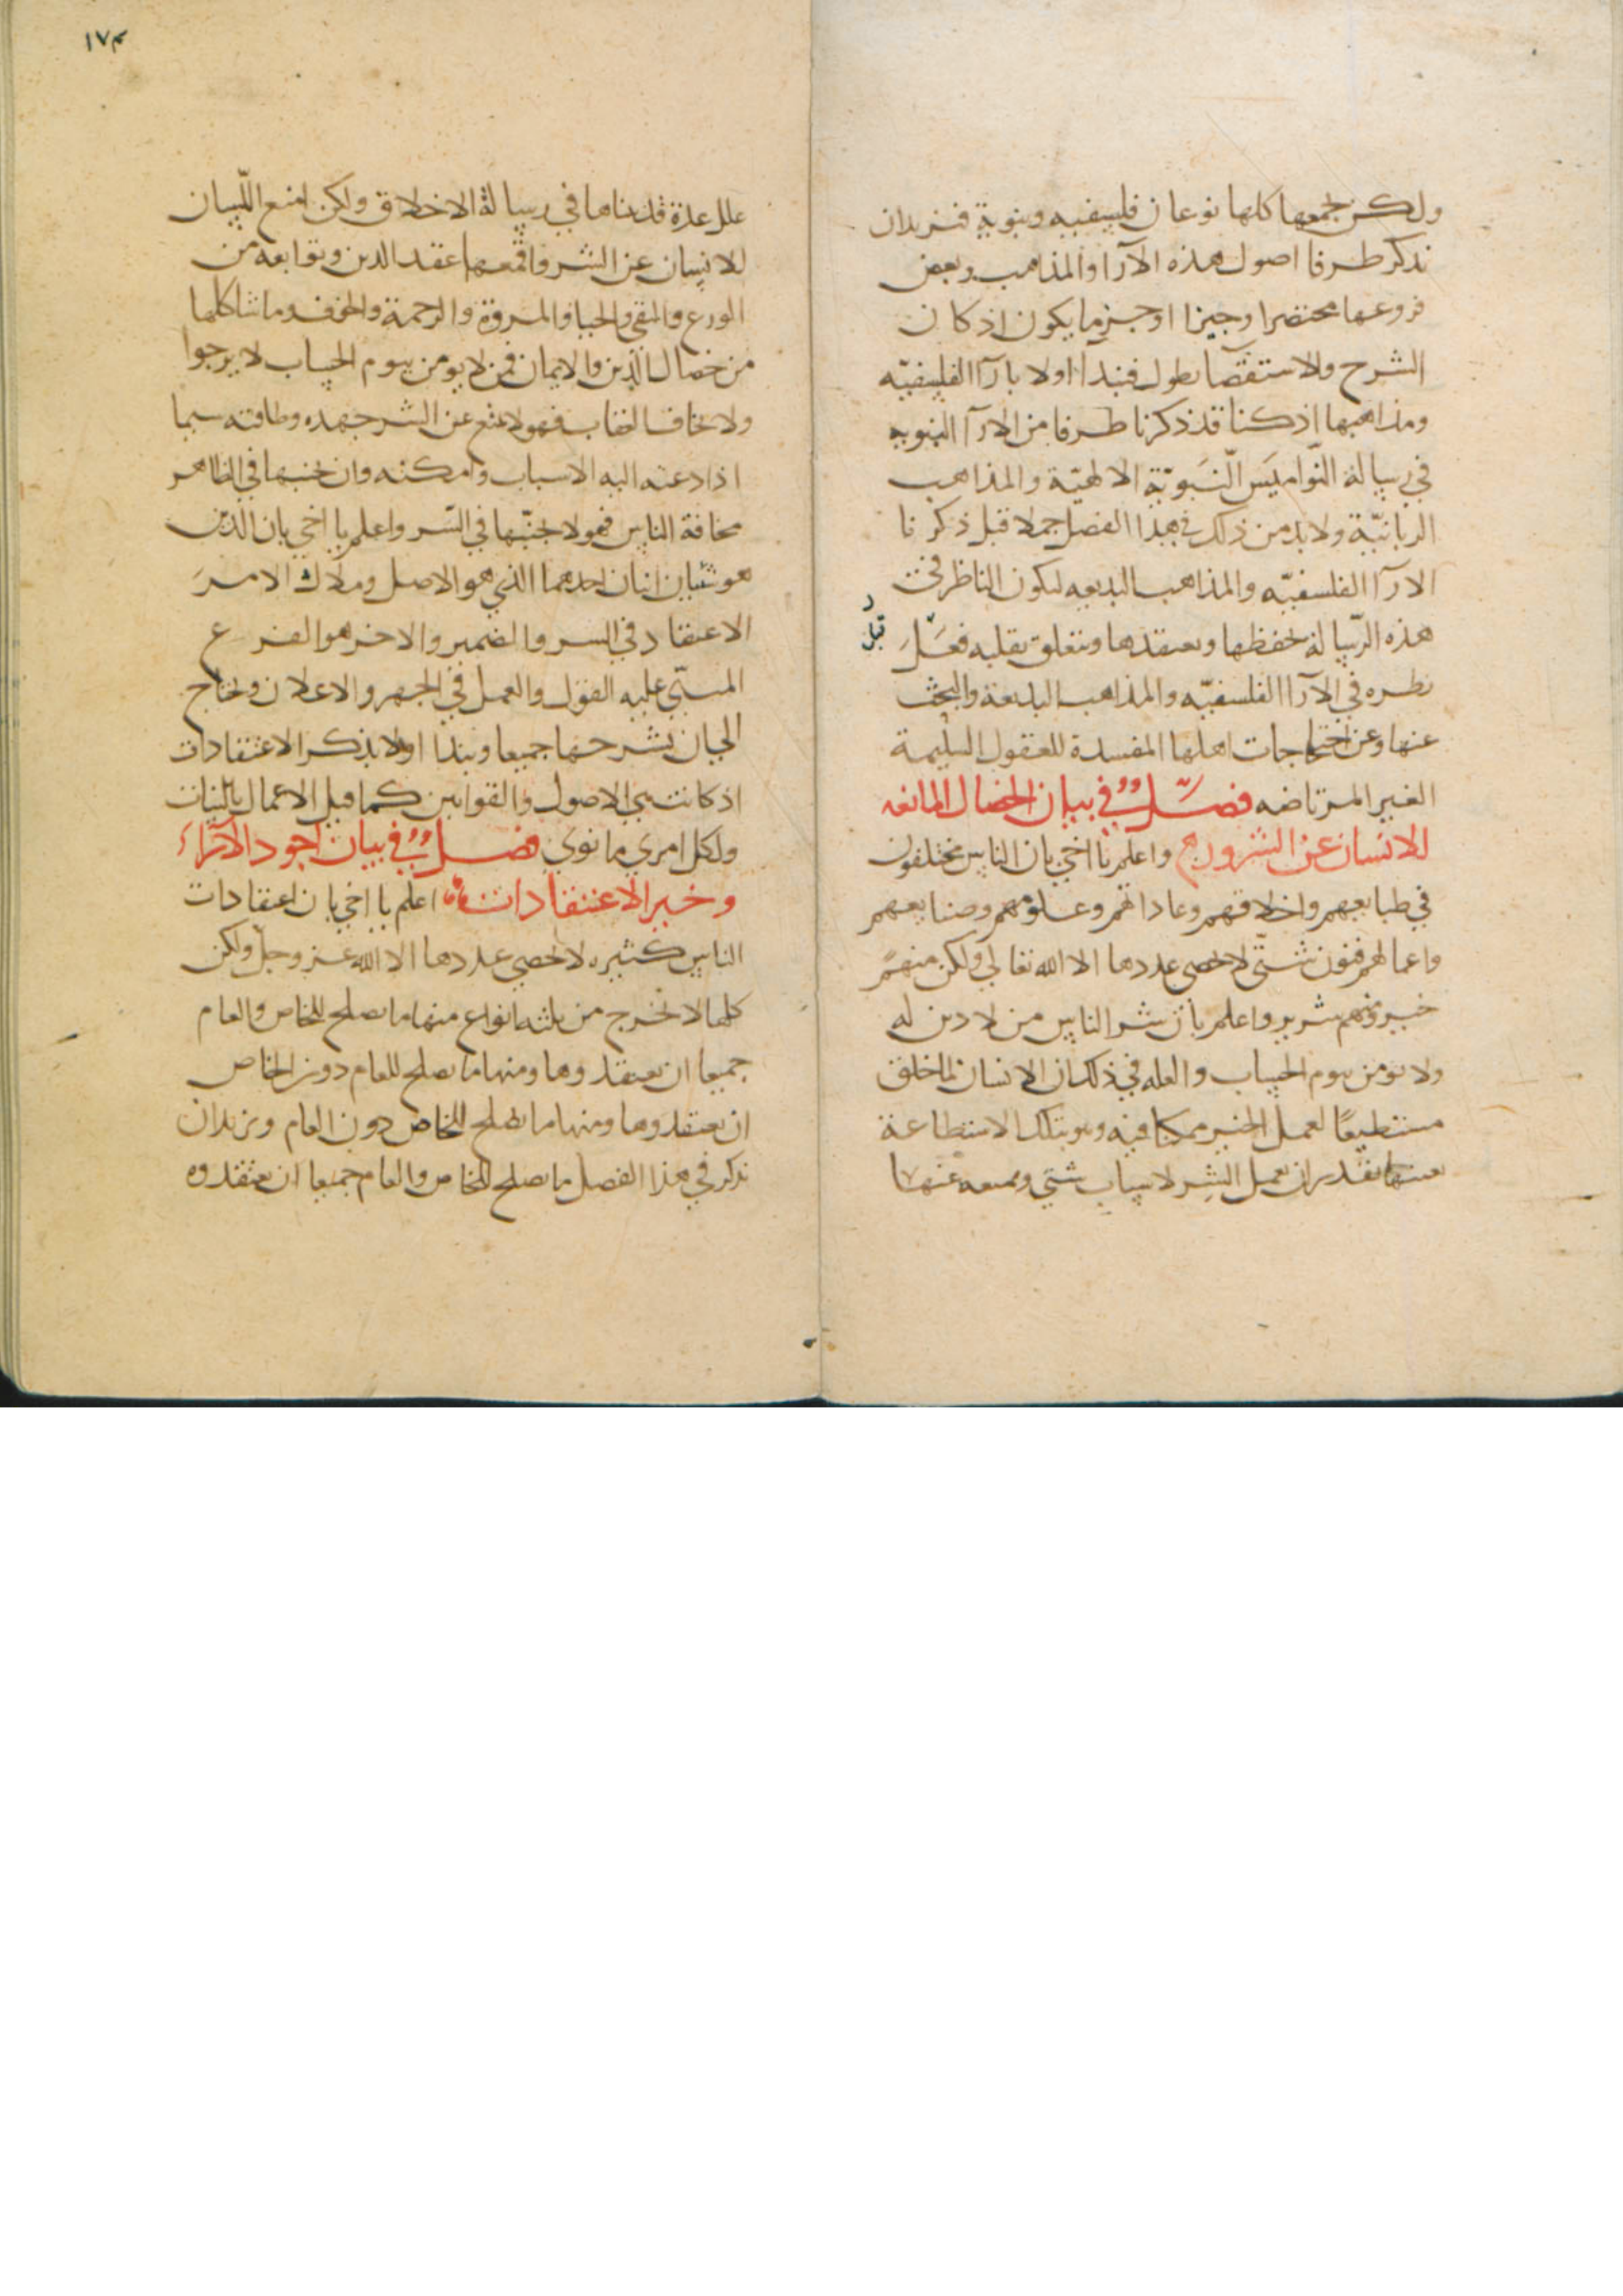 ولكن بجمعها كلها نوعان فليسفيه ونبوية فنريدان
نذكر طرفا اصول هذه الآرا والمذاهب وبعض
فروعها مختصرا وجيزا اوجز ما يكون اذ كان
الشرح والاستقصا يطول فنبدأ اولا بارآ الفليسفيّه
ومذاهبها اذ كنا قد ذكرنا طرفا من الارآ النبويه
في رسالة النّواميَس النَّبَويّة الالهيّة والمذاهب
الربانيّة ولا بد من ذلك في هذا الفصل جملا قبل ذكرنا
الارآ الفلسفيّه والمذاهب البديعه ليكون الناظر في
هذه الرّسالة يحفظها ويعتقدها ويتعلق بقلبه
قبل
نظره في الآرا الفلسفيّه والمذاهب البديعة والبحث
عنها وعن احتجاجات اهلها المفسدة للعقول السليمة
الغير المرتاضه فصل في بيان الخصال المانعه
للانسان عن الشرور واعلم يا اخي بان الناس مختلفون
في طبايعهم واخلاقهم وعاداتهم وعلومهم وصنايعهم
واعمالهم فنون شتى لا يحصى عددها الا الله تعالى ولكن منهم
خير ومنهم شرير واعلم بان شر الناس من لا دين له
ولا يومن بيوم الحساب والعله في ذلك ان الانسان لما خلق
مستطيعًا لعمل الخير ممكنا فيه وهو بتلك الاستطاعة
بعينها يقدر ان يعمل الشر لاسباب شتي ويمنعه عنها
١٧٣
علل عدة قد بيناها في رسالة الاخلاق ولكن امنع اللّسان
للانسان عن الشر واقمعها عقد الدين وتوابعه من
الورع والتقى والحيا والمروة والرحمة والخوف وما شاكلها
من خصال الدين والايمان فمن لا يومن بيوم الحساب لا يرجوا
ولا يخاف العقاب فهو لا يمتنع عن الشر جهده وطاقته سيما
اذا دعته اليه الاسباب وامكنه وان تجنبها في الظاهر
مخافة الناس فهو لا يجتنّبها في السّر واعلم يا اخي بان الدّين
هو شيئان اثنان احدهما الذي هو الاصل وملاك الامر
الاعتقاد في السر والضمير والاخر هو الفرع
المبنّي عليه القول والعمل في الجهر والاعلان ونحتاج
الى ان نشرحها جميعا ونبدا اولا بذكر الاعتقادات
اذ كانت هي الاصول والقوانين كما قيل الاعمال بالنيات
ولكل امري ما نوي فصل في بيان اجود الآراء
وخير الاعتقادات اعلم يا اخي بان اعتقادات
الناس كثيره لا يحصي عددها الا الله عز وجل ولكن
كلها لا تخرج من ثلثه انواع منها ما يصلح للخاص والعام
جميعا ان يعتقدوها ومنها ما يصلح للعام دون الخاص
ان يعتقدوها ومنها ما يصلح للخاص دون العام ونريدان
نذكر في هذا الفصل ما يصلح للخاص والعام جميعا ان يعتقدوه